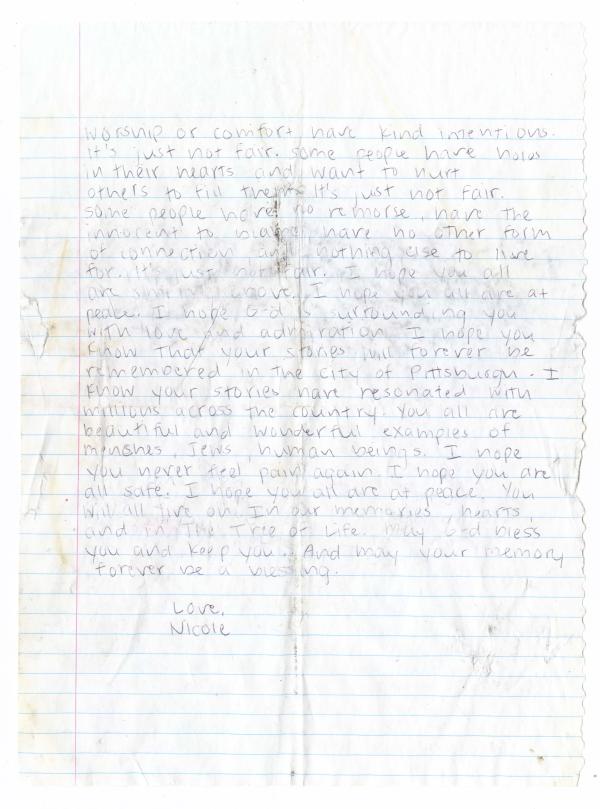 worship or comfort have kind intentions.
It's just not fair. Some people have holes
in their hearts and want to hurt
others to fill them. It's just not fair.
Some people have no remorse, have the
innocent to blame, have no other form
of connection and nothing else to live
for. It's just not fair. I hope you all
are above. I hope you all are at
peace. I hope G-d is surrounding you
with love and admiration. I hope you
know that your stories will forever be
remembered in the city of Pittsburgh. I
know your stories have resonated with
millions across the country. You all are
beautiful and wonderful examples of
menshes, Jews, human beings. I hope
you never feel pain again. I hope you are
all safe. I hope you all are at peace. You
will all live on. In our memories, hearts,
and in The Tree of Life. May G-d bless
you and keep you. And may your memory
forever be a blessing.
Love,
Nicole